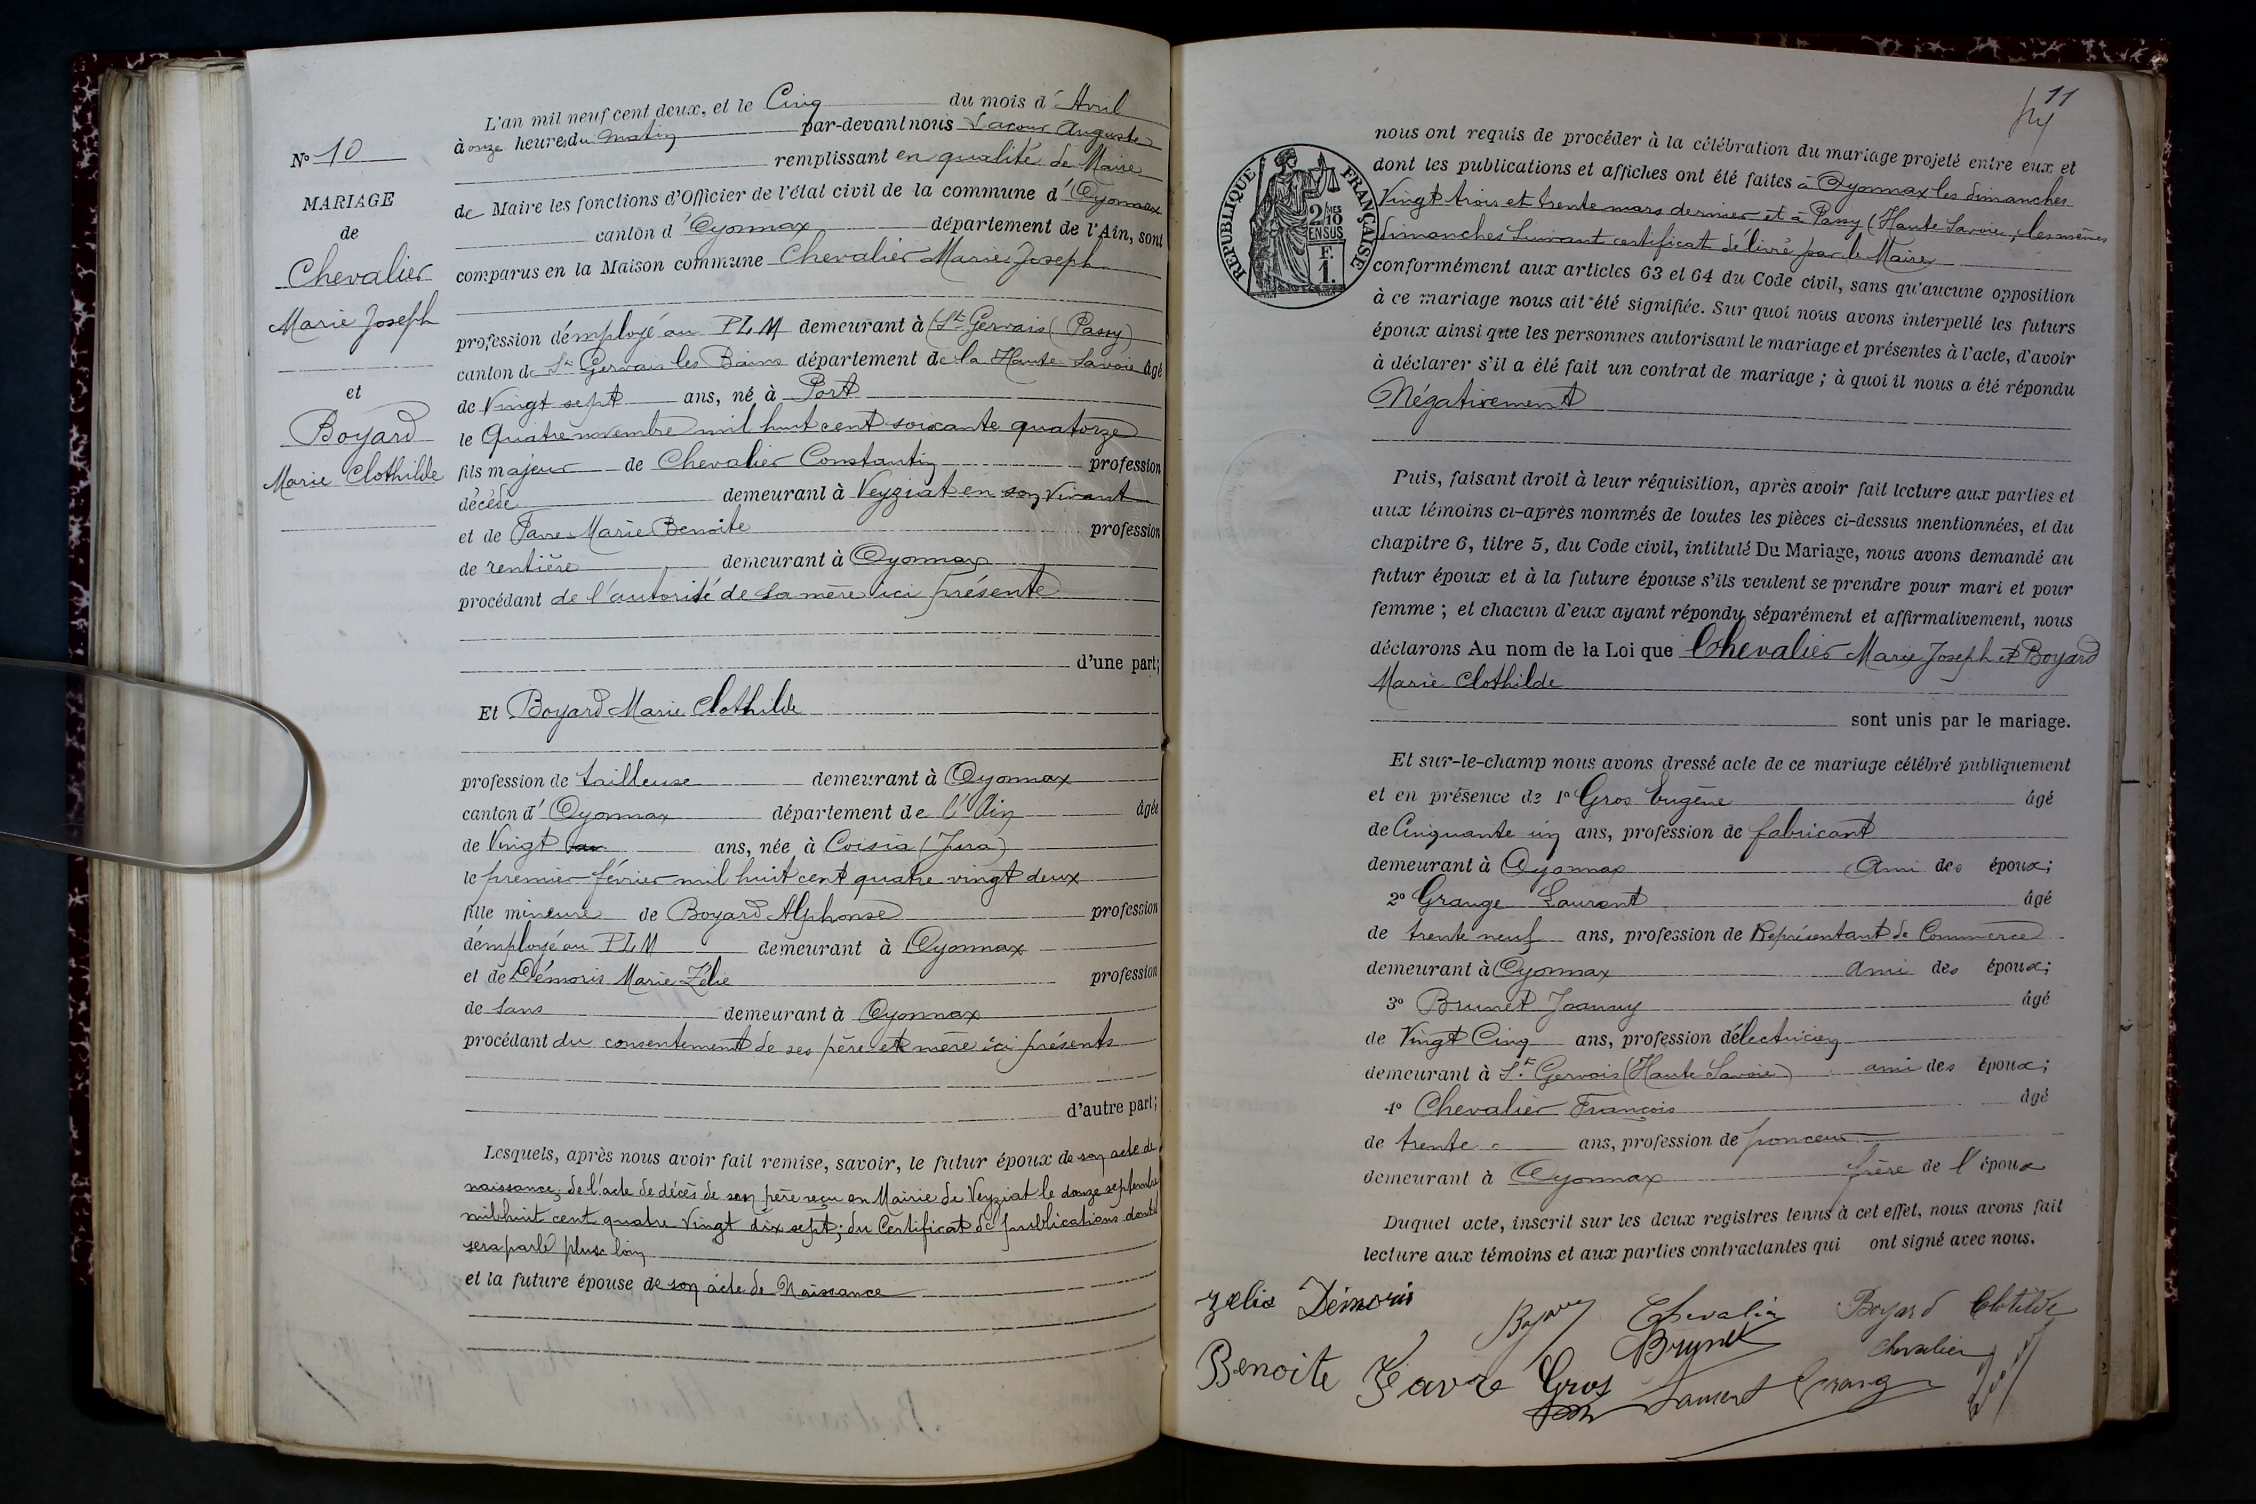 L'an mil neuf cent deux, et le Cinq du mois d'Avril
à onze heures du matin par-devant nous Lacour Auguste
remplissant en qualité de Maire
de Maire les fonctions d'Officier de l'état civil de la commune d'Oyonnax
canton d'Oyonnax département de l'Ain, sont
comparus en la Maison commune Chevalier Marie Joseph
profession d'employé au PLM demeurant à St Gervais (Passy)
canton de St Gervais les Bains département de la Haute Savoie âgé
de Vingt sept ans, né à Port
le Quatre novembre mil huit cent soixante quatorze
fils majeur de Chevalier Constantin profession
décédé demeurant à Veyziat en son vivant
et de Favre Marie Benoite profession
de rentière demeurant à Oyonnax
procédant de l'autorité de sa mère ici présente
d'une part;
Et Boyard Marie Clothilde
profession de tailleuse demeurant à Oyonnax
canton d'Oyonnax département de l'Ain âgée
de Vingt ans, née à Coisia (Jura)
le premier février mil huit cent quatre vingt deux
fille mineure de Boyard Alphonse profession
d'employé au PLM demeurant à Oyonnax
et de Démoris Marie Zélie profession
de sans demeurant à Oyonnax
procédant du consentement de ses père et mère ici présents
d'autre part;
Lesquels, après nous avoir fait remise, savoir, le futur époux de son acte de
naissance; de l'acte de décès de son père reçu en Mairie de Veyziat le douze septembre
mil huit cent quatre vingt dix sept; du Certificat de publications dont il
sera parlé plus loin
et la future épouse de son acte de Naissance
No 10
MARIAGE
de
Chevalier
Marie Joseph
et
Boyard
Marie Clothilde
11
RÉPUBLIQUE FRANÇAISE
2/10 MES
EN SUS
F.
1.
nous ont requis de procéder à la célébration du mariage projeté entre eux et
dont les publications et affiches ont été faites à Oyonnax les dimanches
Vingt trois et trente mars dernier et à Passy (Haute Savoie), les mêmes
dimanches suivant certificat délivré par le Maire
conformément aux articles 63 et 64 du Code civil, sans qu'aucune opposition
à ce mariage nous ait été signifiée. Sur quoi nous avons interpellé les futurs
époux ainsi que les personnes autorisant le mariage et présentes à l'acte, d'avoir
à déclarer s'il a été fait un contrat de mariage; à quoi il nous a été répondu
Négativement
Puis, faisant droit à leur réquisition, après avoir fait lecture aux parties et
aux témoins ci-après nommés de toutes les pièces ci-dessus mentionnées, et du
chapitre 6, titre 5, du Code civil, intitulé Du Mariage, nous avons demandé au
futur époux et à la future épouse s'ils veulent se prendre pour mari et pour
femme; et chacun d'eux ayant répondu séparément et affirmativement, nous
déclarons Au nom de la Loi que Chevalier Marie Joseph et Boyard
Marie Clothilde
sont unis par le mariage.
Et sur-le-champ nous avons dressé acte de ce mariage célébré publiquement
et en présence de 1o Gros Eugène âgé
de Cinquante un ans, profession de fabricant
demeurant à Oyonnax Ami des époux;
2o Grange Laurent âgé
de trente neuf ans, profession de Représentant de Commerce
demeurant à Oyonnax ami des époux;
3o Brunet Joanny âgé
de Vingt Cinq ans, profession d'électricien
demeurant à St Gervais (Haute Savoie) ami des époux;
4o Chevalier François âgé
de trente ans, profession de ponceur
demeurant à Oyonnax frère de l'époux
Duquel acte, inscrit sur les deux registres tenus à cet effet, nous avons fait
lecture aux témoins et aux parties contractantes qui ont signé avec nous.
Zelie Démoris Boyard Chevalier Boyard Clotilde
Brunet Chevalier
Benoite Favre Gros Laurent Grange